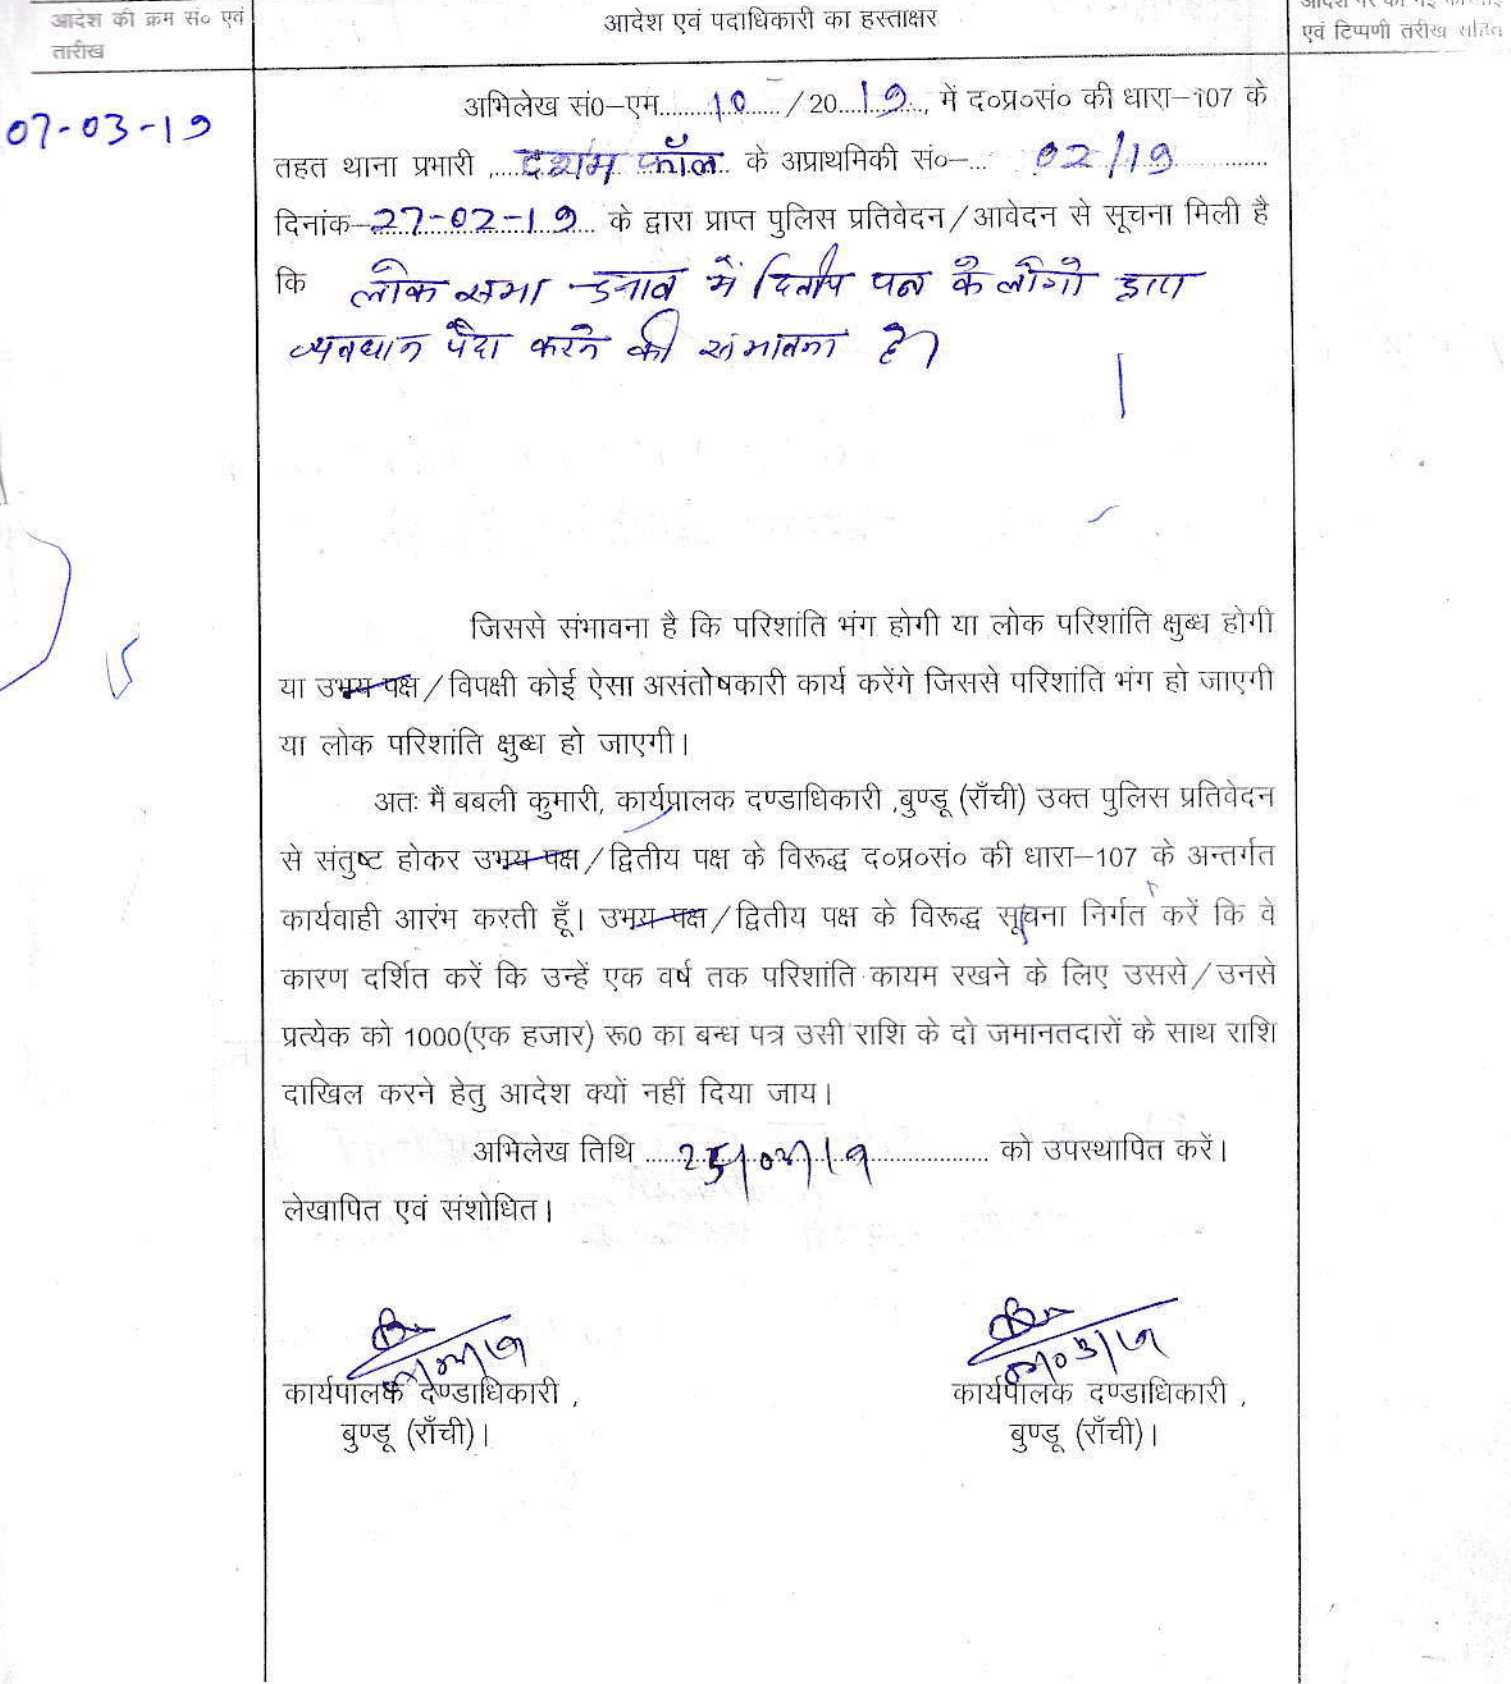 आदेश की क्रम सं० एवं
तारीख
आदेश एवं पदाधिकारी का हस्ताक्षर
एवं टिप्पणी तरीख सहित
07-03-19
अभिलेख सं0-एम. 10 /20 19 , में द०प्र०सं० की धारा-107 के
तहत थाना प्रभारी , दशम फॉल के अप्राथमिकी सं०- 02/19
दिनांक- 27-02-19 के द्वारा प्राप्त पुलिस प्रतिवेदन/आवेदन से सूचना मिली है
कि लोक सभा चुनाव में द्वितीय पक्ष के लोगो द्वारा
व्यवधान पैदा करने की संभावना है।
जिससे संभावना है कि परिशांति भंग होगी या लोक परिशांति क्षुब्ध होगी
या उभय पक्ष/विपक्षी कोई ऐसा असंतोषकारी कार्य करेंगे जिससे परिशांति भंग हो जाएगी
या लोक परिशांति क्षुब्ध हो जाएगी।
अतः मैं बबली कुमारी, कार्यप्रालक दण्डाधिकारी ,बुण्डू (राँची) उक्त पुलिस प्रतिवेदन
से संतुष्ट होकर उभय पक्ष/द्वितीय पक्ष के विरूद्ध द०प्र०सं० की धारा-107 के अन्तर्गत
कार्यवाही आरंभ करती हूँ। उभय पक्ष/द्वितीय पक्ष के विरूद्ध सूचना निर्गत करें कि वे
कारण दर्शित करें कि उन्हें एक वर्ष तक परिशांति कायम रखने के लिए उससे/उनसे
प्रत्येक को 1000(एक हजार) रू0 का बन्ध पत्र उसी राशि के दो जमानतदारों के साथ राशि
दाखिल करने हेतु आदेश क्यों नहीं दिया जाय।
अभिलेख तिथि 25/03/19 को उपस्थापित करें।
लेखापित एवं संशोधित।
कार्यपालक दण्डाधिकारी , कार्यपालक दण्डाधिकारी ,
बुण्डू (राँची)। बुण्डू (राँची)।